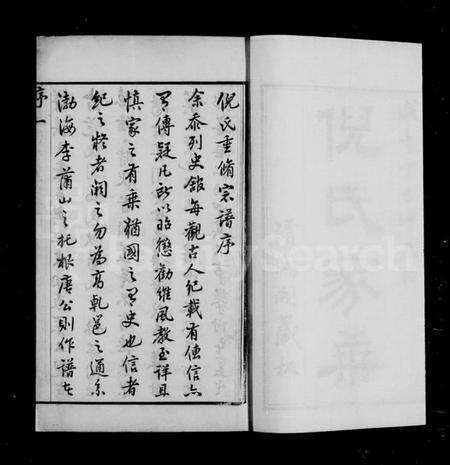 倪氏重脩宗譜序
余忝列史館每觀古人紀載有傳信亦
有傳疑凡所以昭懲勸維風教至詳且
慎家之有乘猶國之有史也信者
紀之疑者闕之勿為高軋邑之通系
渤海李蕭山之托根唐公則作譜之
序一
倪氏宗譜